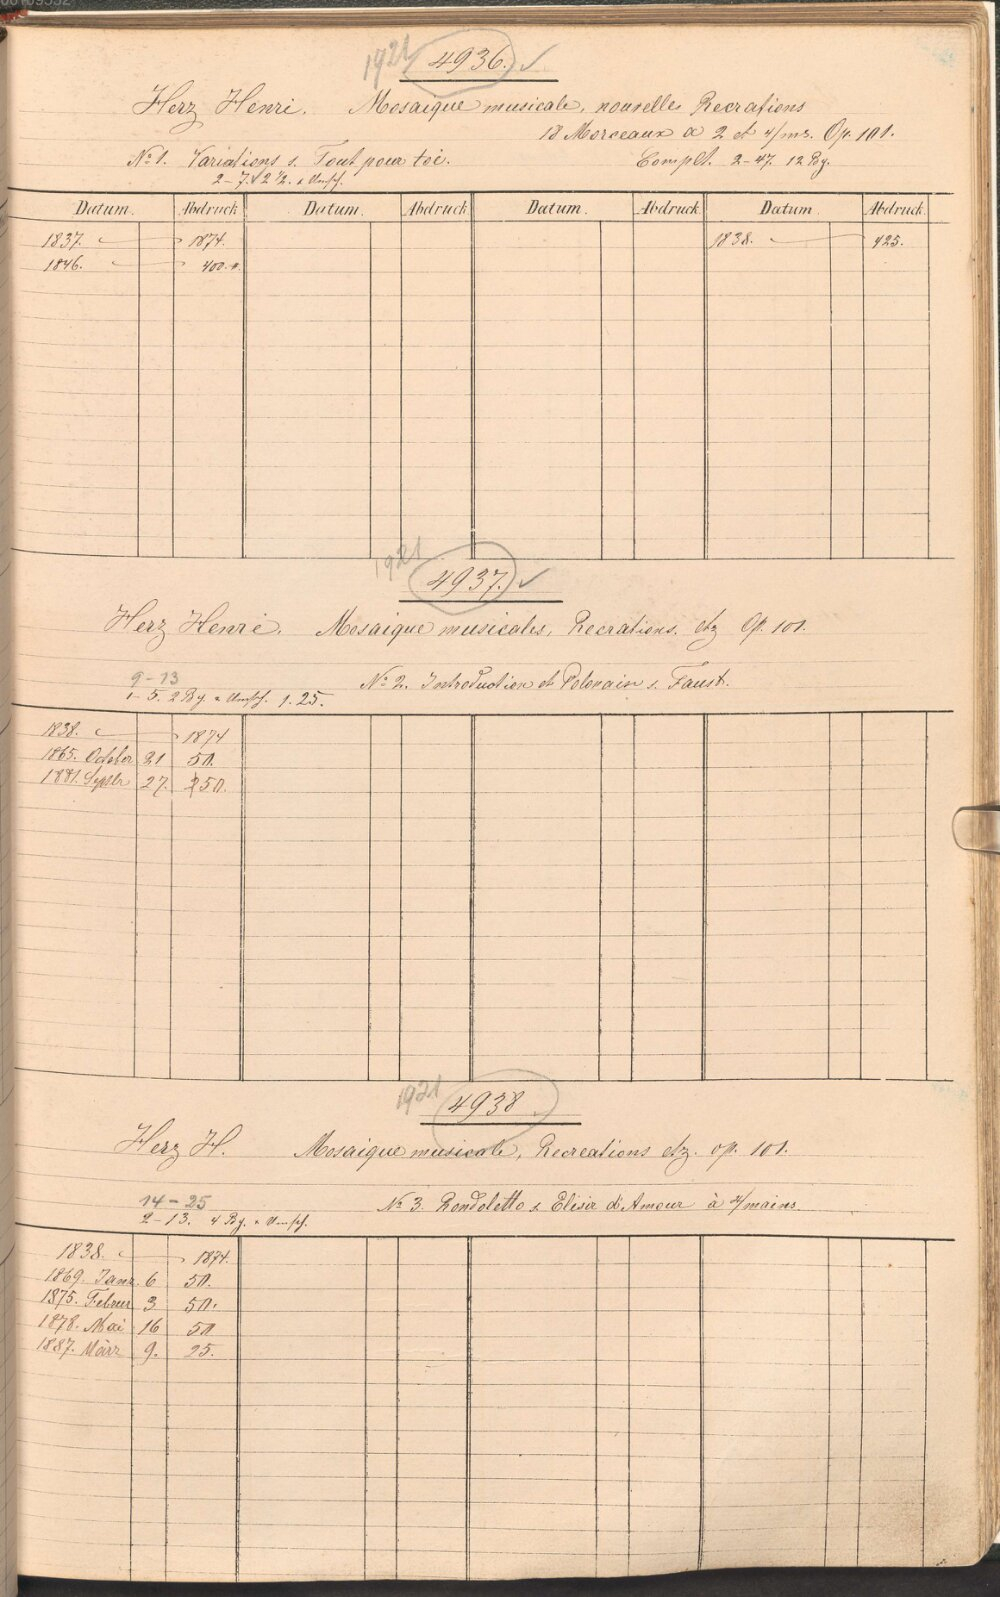 1921 4936. ✓
Herz Henri. Mosaique musicale, nouvelle Recrations
18 Morceaux a 2 et 4/ms. Op. 101.
No 1. Variations s. Tout pour toi. Complt. 2-47. 12 Bg.
2-7. 2 1/2. Umsch.
Datum. Abdruck Datum. Abdruck Datum. Abdruck. Datum Abdruck.
1837. 1874. 1838. 425.
1846. 400.
1921
4937. ✓
Herz Henri. Mosaique musicales, Recrations. etz Op. 101.
9-13 No 2. Introduction et Polonaise s. Faust.
1-5. 2 Bg. Umsch. 1.25.
1838. 1874
1865. October 21 50.
1881. Septbr 27. 250.
1921 4938
Herz H. Mosaique musicale, Recreations etz. op. 101.
14-25 No 3. Rondoletto s. Elisir d'Amour à 4/mains.
2-13. 4 Bg. Umsch.
1838. 1874.
1869. Janr. 6 50.
1875. Februr 3 50.
1878. Mai 16 50
1887. März 9. 25.